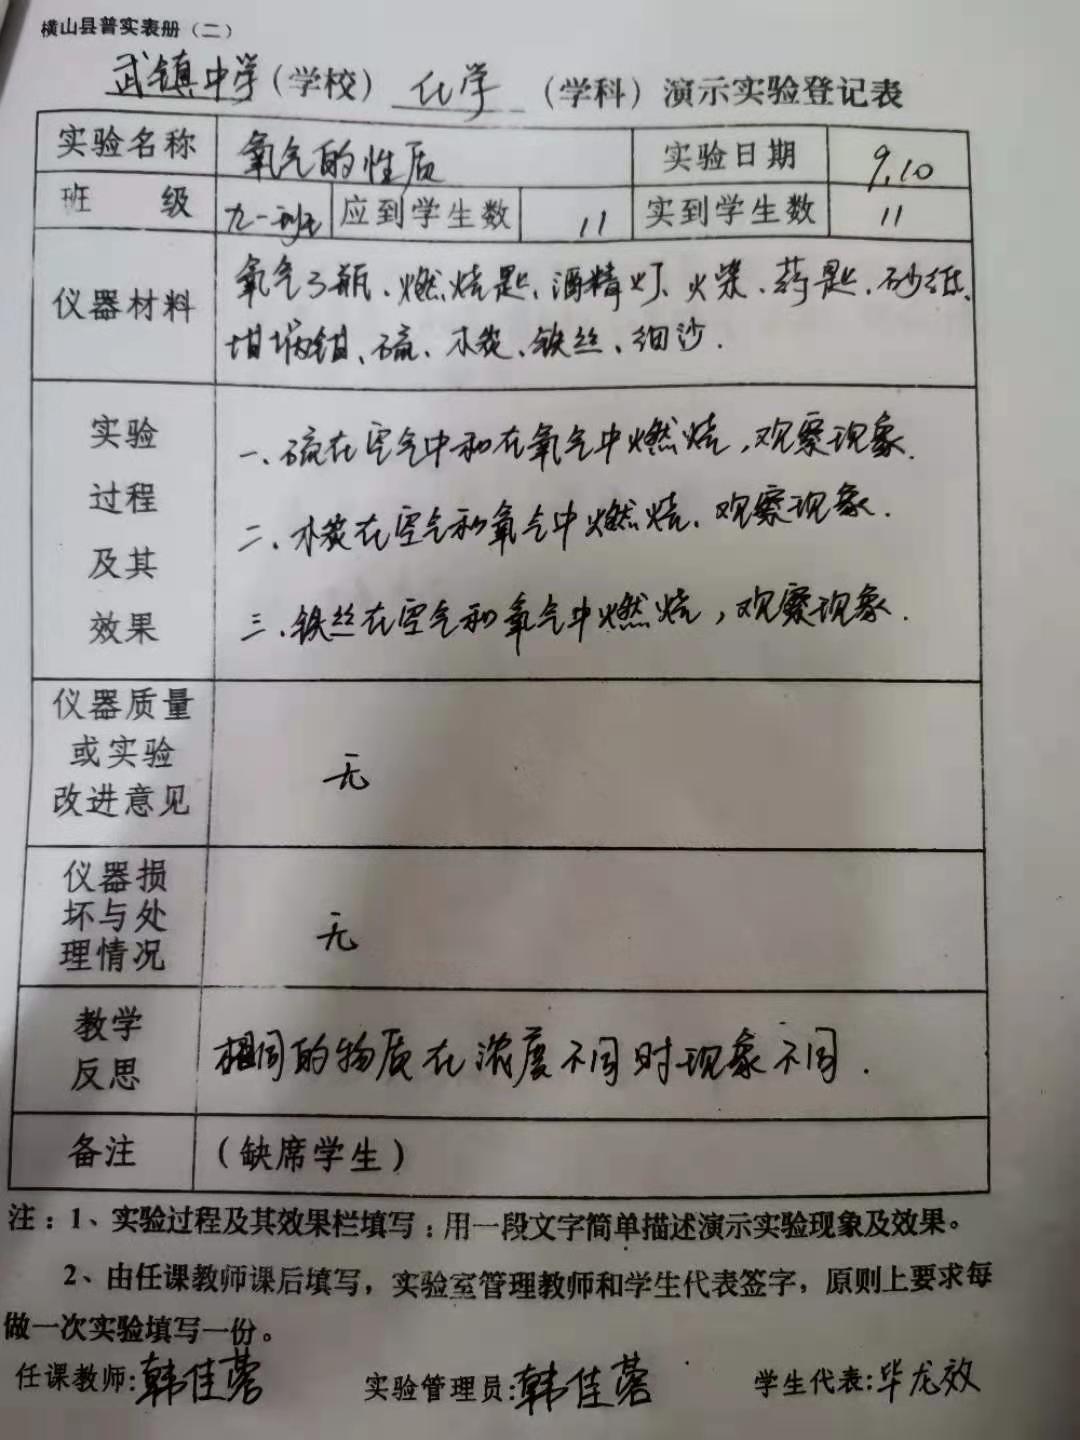 横山县普实表册（二）
武镇中学（学校）化学（学科）演示实验登记表
实验名称 氧气的性质 实验日期 9.10
班 级 九一班 应到学生数 11 实到学生数 11
仪器材料 氧气3瓶、燃烧匙、酒精灯、火柴、药匙、砂纸、
坩埚钳、硫、木炭、铁丝、细沙.
实验
过程
及其
效果
一、硫在空气中和在氧气中燃烧,观察现象.
二、木炭在空气和氧气中燃烧、观察现象.
三、铁丝在空气和氧气中燃烧,观察现象.
仪器质量
或实验
改进意见
无
仪器损
坏与处
理情况
无
教学
反思
相同的物质在浓度不同时现象不同.
备注 （缺席学生）
注：1、实验过程及其效果栏填写：用一段文字简单描述演示实验现象及效果。
2、由任课教师课后填写，实验室管理教师和学生代表签字，原则上要求每
做一次实验填写一份。
任课教师:韩佳蓉 实验管理员:韩佳蓉 学生代表:毕龙效